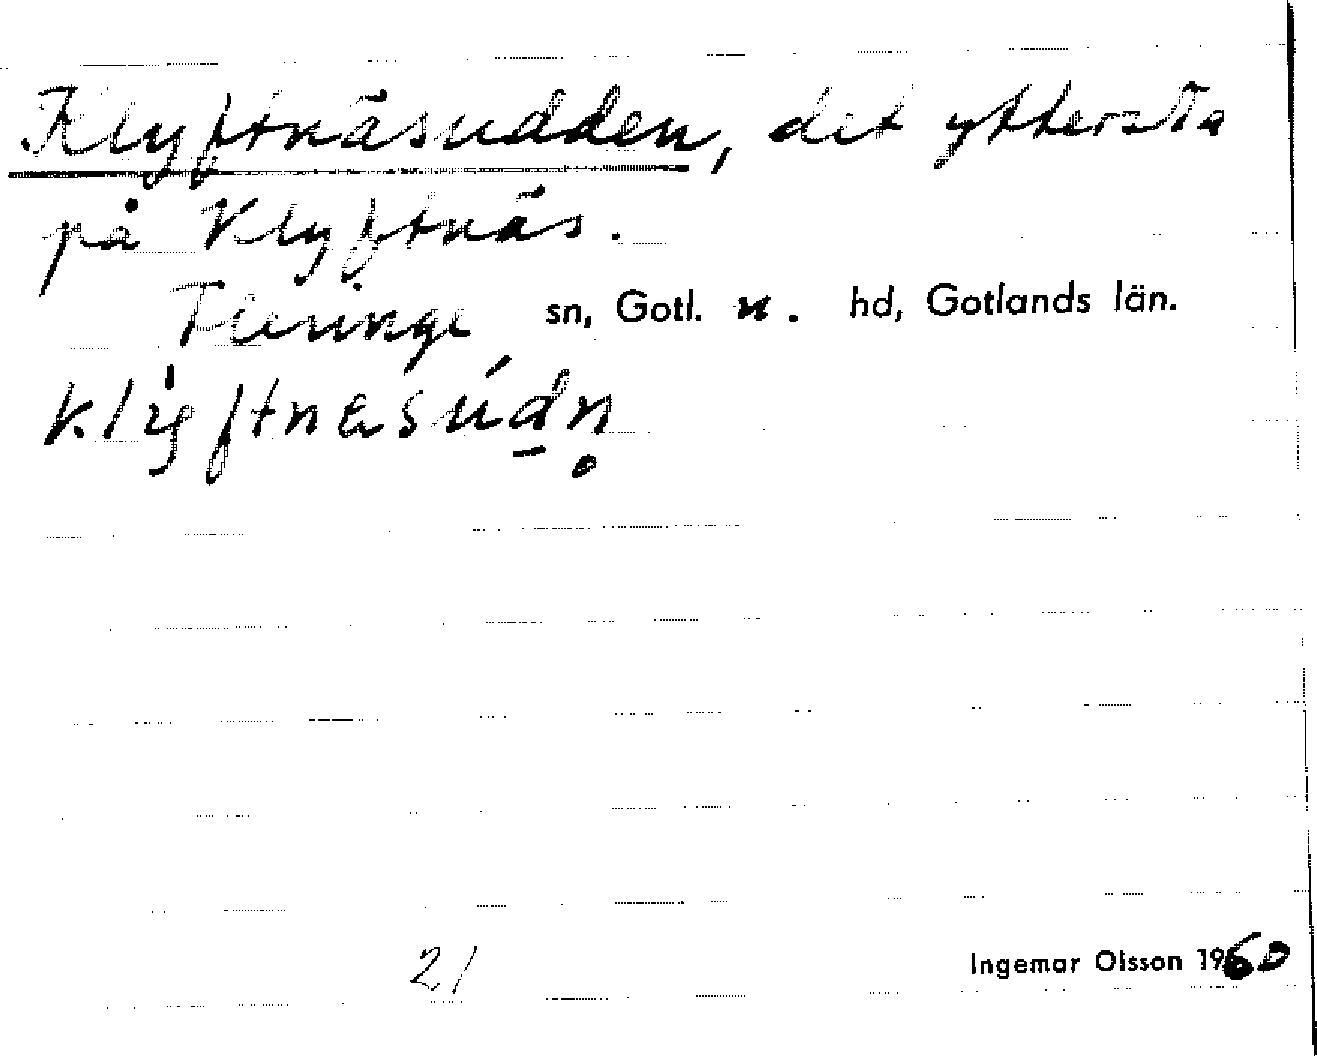 Klyftnäsudden, det yttersta
på Klyftnäs.
Fleringe sn, Gotl. n. hd, Gotlands län.
klỳftnæsúd̠n̥
21
Ingemar Olsson 1960